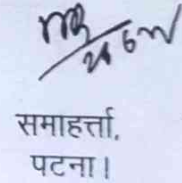 समाहर्त्ता,
पटना।